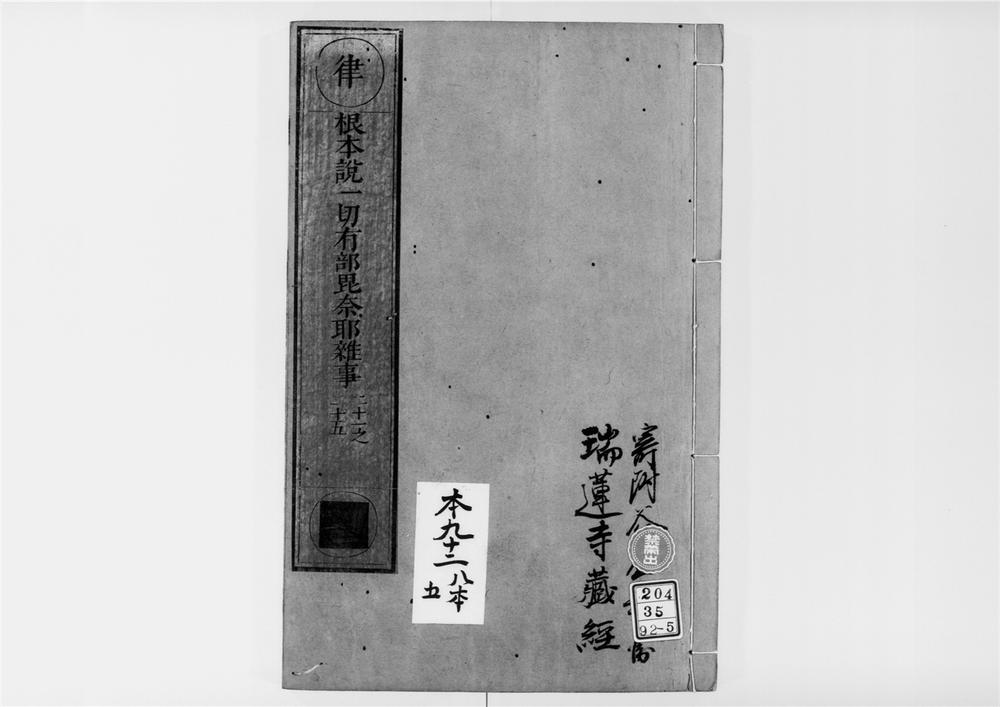 律
根本說一切有部毘奈耶雜事 二十一之
二十五
本九十二 八本
五
寄附
瑞蓮寺藏經
禁帶出
204
35
92-5